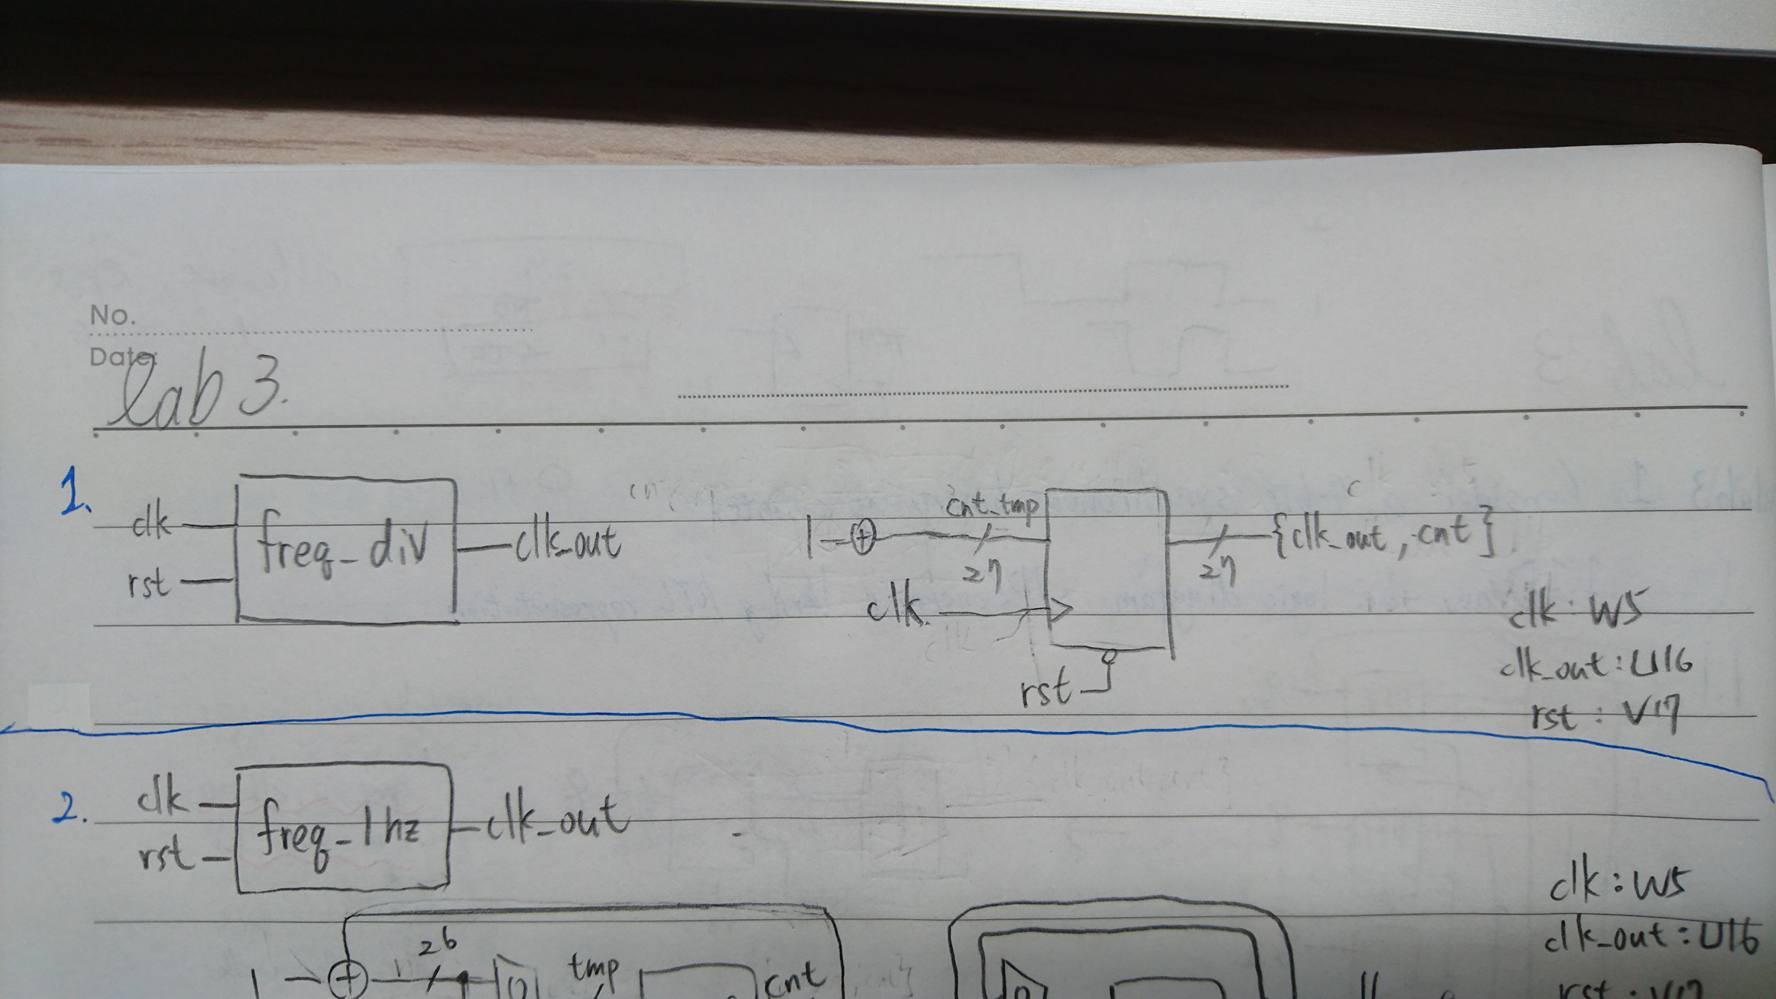 No.
Date
lab 3.
1.
clk
rst
freq_div
clk_out
1
cnt_tmp
27
clk
rst
27
{clk_out, cnt}
clk : W5
clk_out : U16
rst : V17
2.
clk
rst
freq_1hz
clk_out
clk : W5
clk_out : U16
rst : V17
1
26
0
tmp
cnt
0